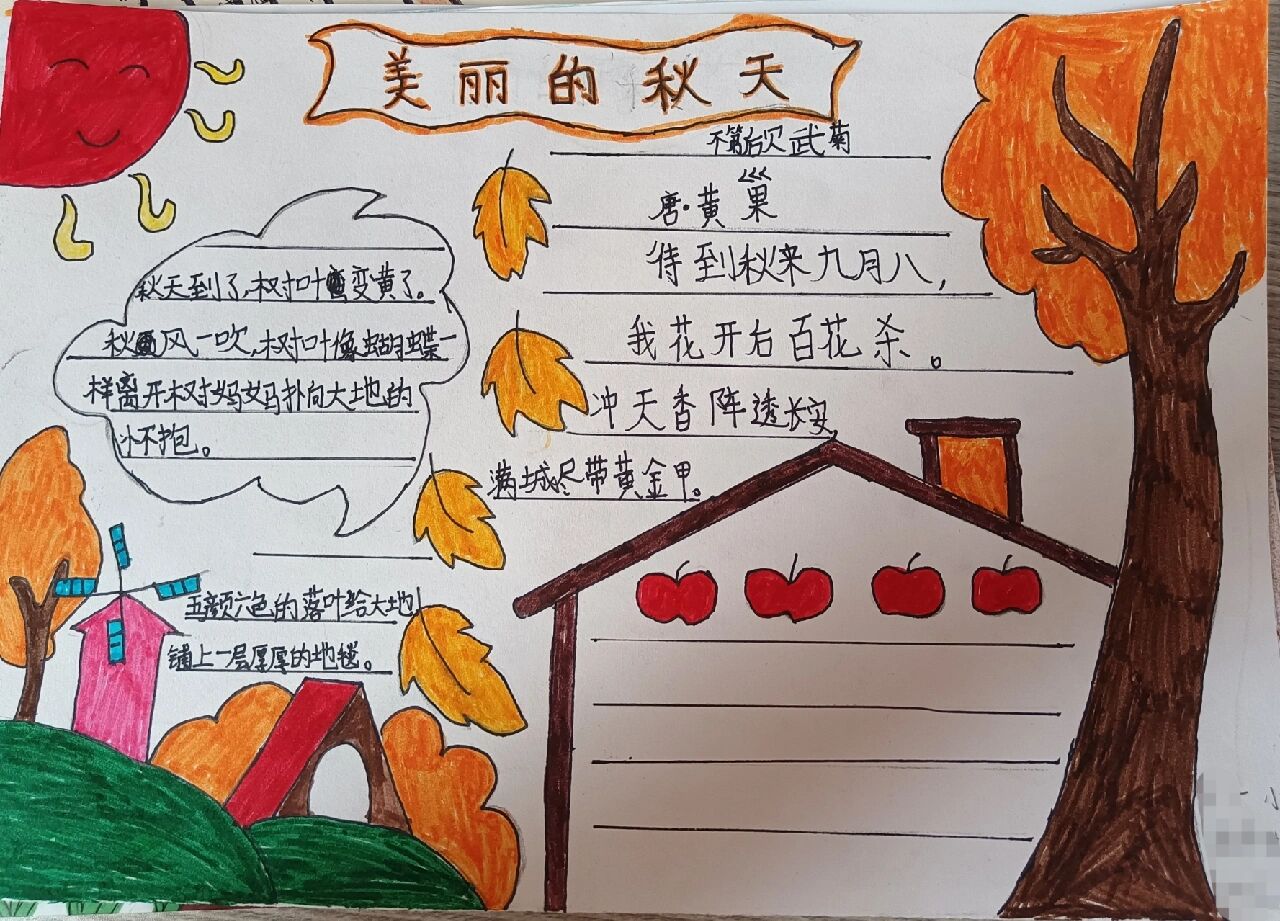 美丽的秋天
不第后欠武菊
唐·黄巢
待到秋来九月八,
我花开后百花杀。
冲天香阵透长安
满城尽带黄金甲。
秋天到了,树叶变黄了。
秋风一吹,树叶像蝴蝶一
样离开树妈妈扑向大地的
怀抱。
五颜六色的落叶给大地
铺上一层厚厚的地毯。